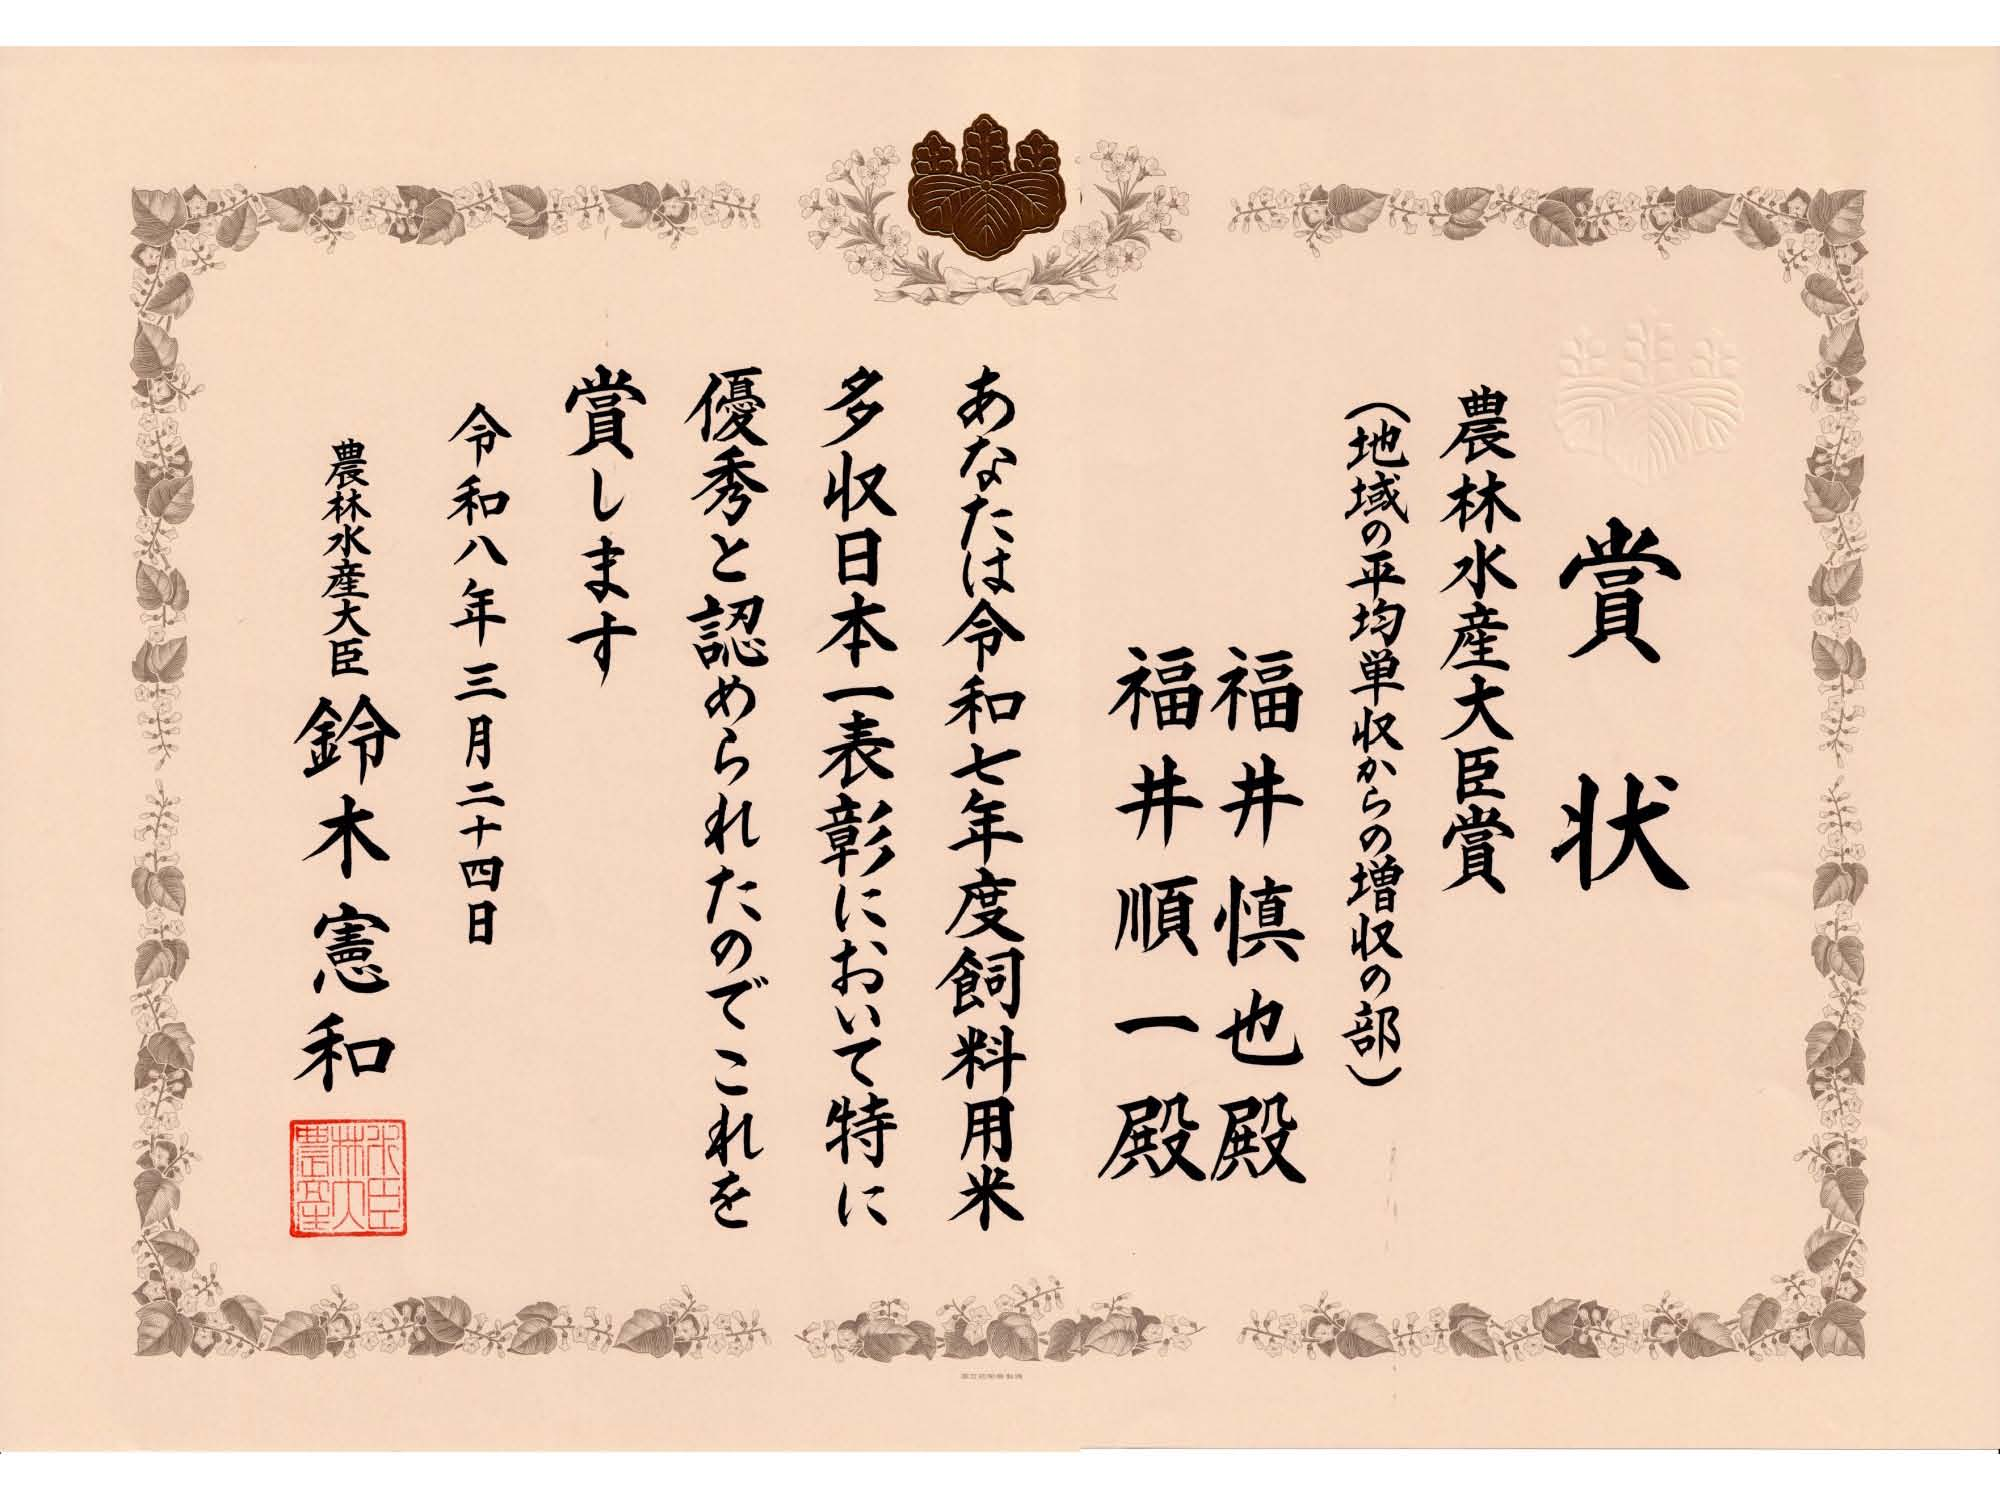 賞状
農林水産大臣賞
（地域の平均単収からの増収の部）
福井慎也殿
福井順一殿
あなたは令和七年度飼料用米
多収日本一表彰において特に
優秀と認められたのでこれを
賞します
令和八年三月二十四日
農林水産大臣 鈴木憲和
農林水産大臣